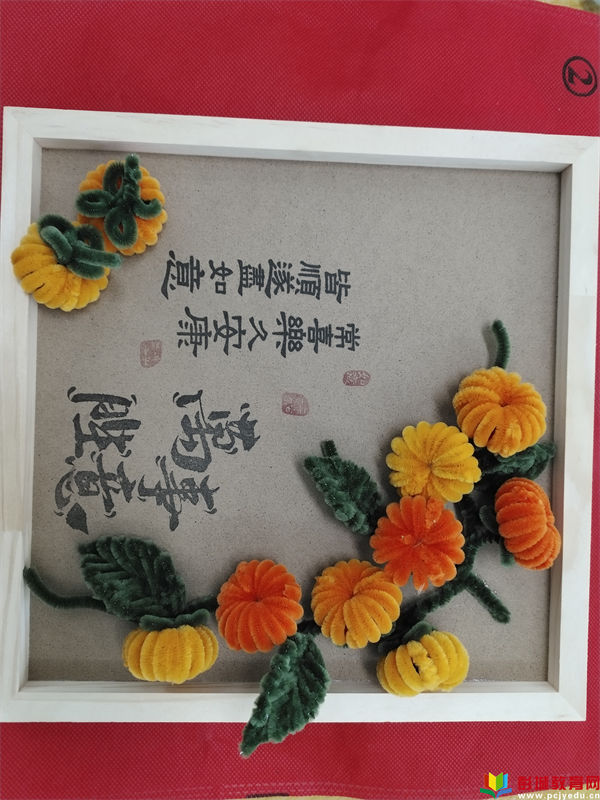 ②
萬事
勝意
常喜樂久安康
皆順遂盡如意
彭城教育网
www.pcjyedu.cn